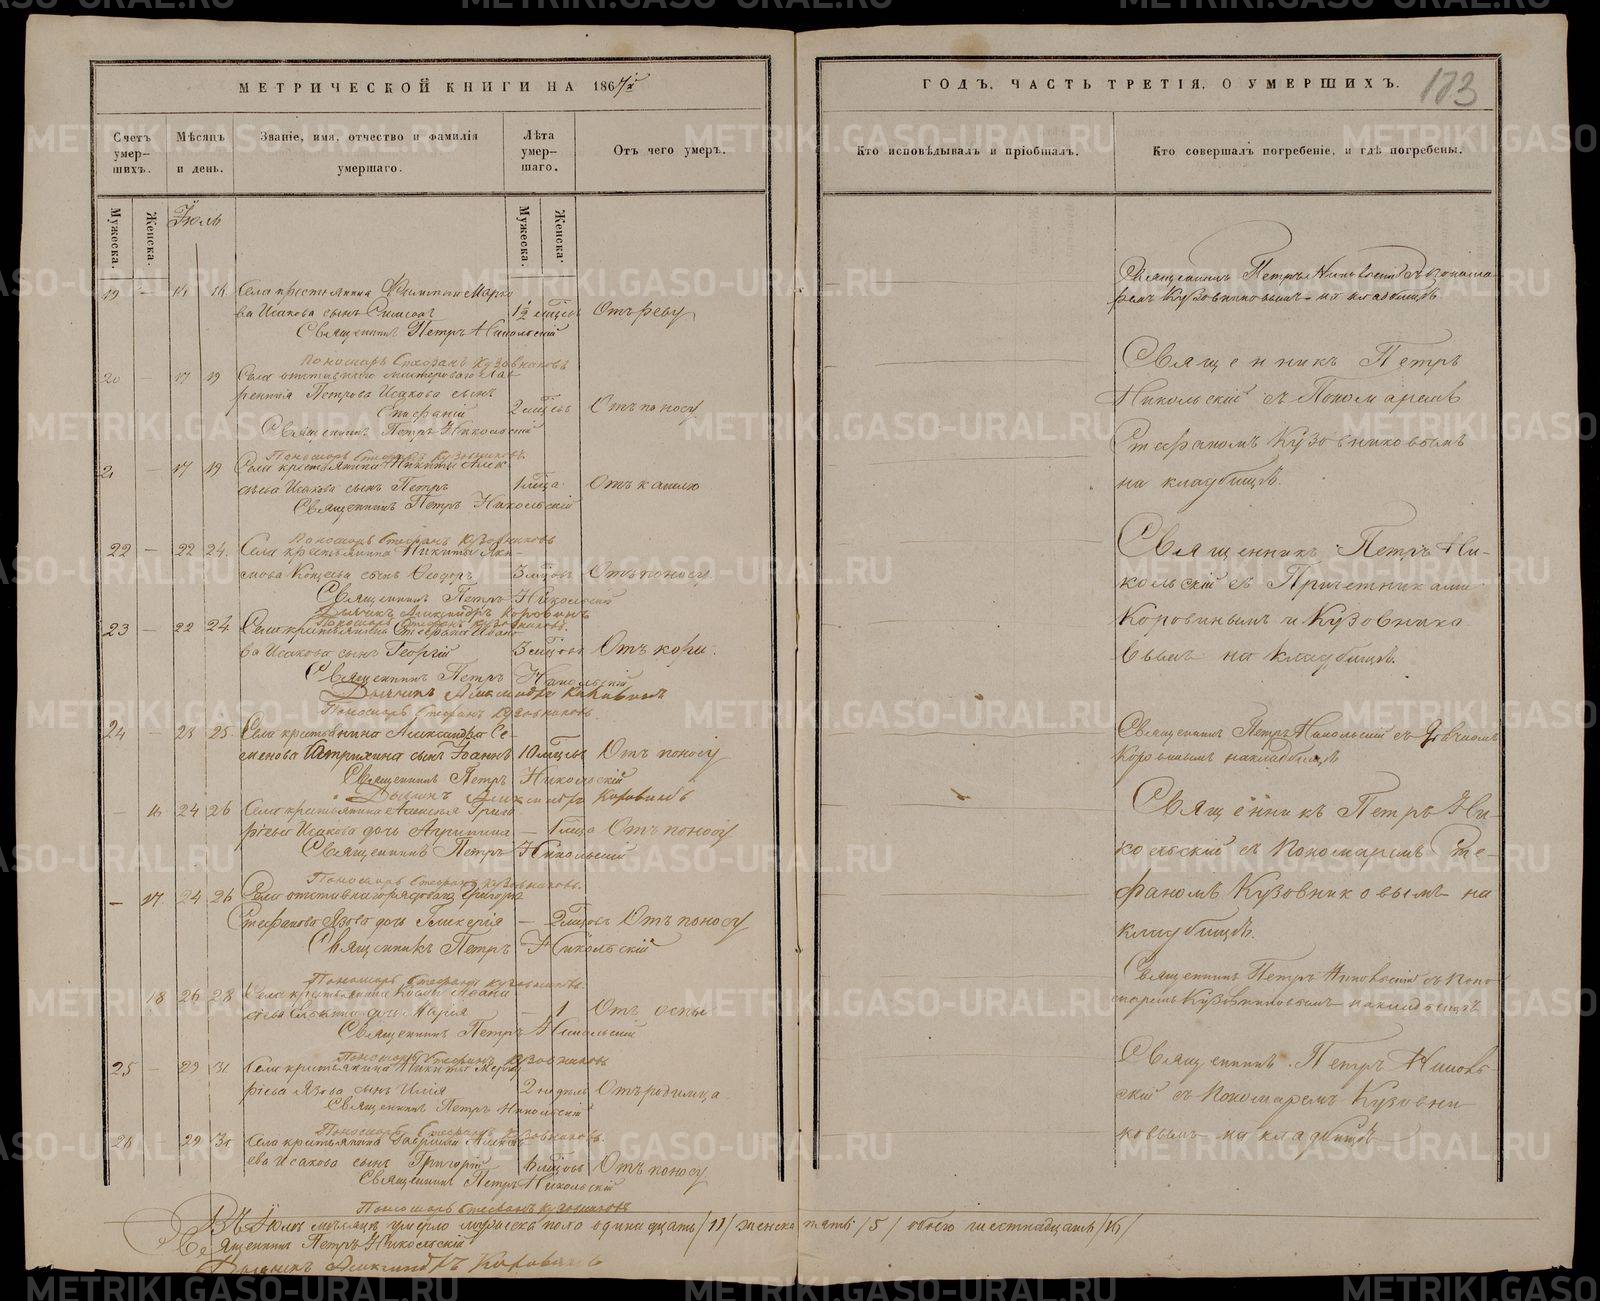 МЕТРИЧЕСКОЙ КНИГИ НА 1867й
Счетъ умер-шихъ.
Мѣсяцъ и день.
Званіе, имя, отчество и фамилія умершаго.
Лѣта умер-шаго.
Отъ чего умеръ.
Мужеска. Женска.
Іюль
Мужеска. Женска.
19 — 14 16 Села крестьянина Филиппа Марко
ва Исакова сынъ 1½ Отъ реву
Священникъ Петръ Никольскій
Пономарь Стефанъ Кузовниковъ
20 17 19 Села отставнаго мастероваго Лав
рентія Петрова Исакова сынъ
Епифаній 2 мѣсецъ Отъ поносу
Священникъ Петръ Никольскій
Пономарь Стефанъ Кузовниковъ
21 — 17 19 Села крестьянина Никиты Алек
сѣева Исакова сынъ Петръ 1 мѣсца Отъ кашлю
Священникъ Петръ Никольскій
Пономарь Стефанъ Кузовниковъ
22 — 22 24. Села крестьянина Никиты Яки-
мова сынъ Ѳеодоръ 3 мѣсцовъ Отъ поносу
Священникъ Петръ Никольскій
Дьячекъ Александръ Коровинъ
Пономарь Стефанъ Кузовниковъ
23 — 22 24 Села крестьянина Стефана Ивано
ва Исакова сынъ Георгій 3 мѣсцовъ Отъ кори.
Священникъ Петръ Никольскій
Дьячекъ Александръ Коровинъ
Пономарь Стефанъ Кузовниковъ
24 — 23 25 Села крестьянина Александра Се-
менова сынъ Іоаннъ 10 мѣсцовъ Отъ поносу
Священникъ Петръ Никольскій
Дьячекъ Александръ Коровинъ
— 16 24 26 Села крестьянина Алексѣя Григо
рьева Исакова дочь Агрипина — 1 мѣсца Отъ поносу
Священникъ Петръ Никольскій
Пономарь Стефанъ Кузовниковъ
— 17 24 26 Села отставнаго рядоваго Григорія
Стефанова Язова дочь Гликерія — 2 мѣсцовъ Отъ поносу
Священникъ Петръ Никольскій
Пономарь Стефанъ Кузовниковъ
18 26 28 Села крестьянина
дочь Марія — 1 Отъ оспы
Священникъ Петръ Никольскій
Пономарь Стефанъ Кузовниковъ
25 — 29 31 Села крестьянина Никиты
Язова сынъ Илія 2 недѣль Отъ родимца
Священникъ Петръ Никольскій
Пономарь Стефанъ Кузовниковъ.
26 29 31 Села крестьянина Гавріила Алексѣ
ева Исакова сынъ Григорій мѣсцовъ Отъ поносу
Священникъ Петръ Никольскій
Пономарь Стефанъ Кузовниковъ
Въ Іюлѣ мѣсяцѣ умерло мужеска пола одинадцать /11/ женска пять /5/ обоего шестнадцать /16/
Священникъ Петръ Никольскій
Дьячекъ Александръ Коровинъ
ГОДЪ. ЧАСТЬ ТРЕТІЯ. О УМЕРШИХЪ.
173
Кто исповѣдывалъ и пріобщалъ.
Кто совершалъ погребеніе, и гдѣ погребены.
Священникъ Петръ Никольскій съ Понома-
ремъ Кузовниковымъ на кладбищѣ
Священникъ Петръ
Никольскій съ Пономаремъ
Стефаномъ Кузовниковымъ
на кладбищѣ.
Священникъ Петръ Ни-
кольскій съ Причетниками
Коровинымъ и Кузовнико
вымъ на кладбищѣ.
Священникъ Петръ Никольскій съ Дьячкомъ
Коровинымъ на кладбищѣ
Священникъ Петръ Ни-
кольскій съ Пономаремъ Сте-
фаномъ Кузовниковымъ на
кладбищѣ.
Священникъ Петръ Никольскій съ Поно-
маремъ Кузовниковымъ на кладбищѣ
Священникъ Петръ Николь-
скій съ Пономаремъ Кузовни
ковымъ на кладбищѣ
METRIKI.GASO-URAL.RU